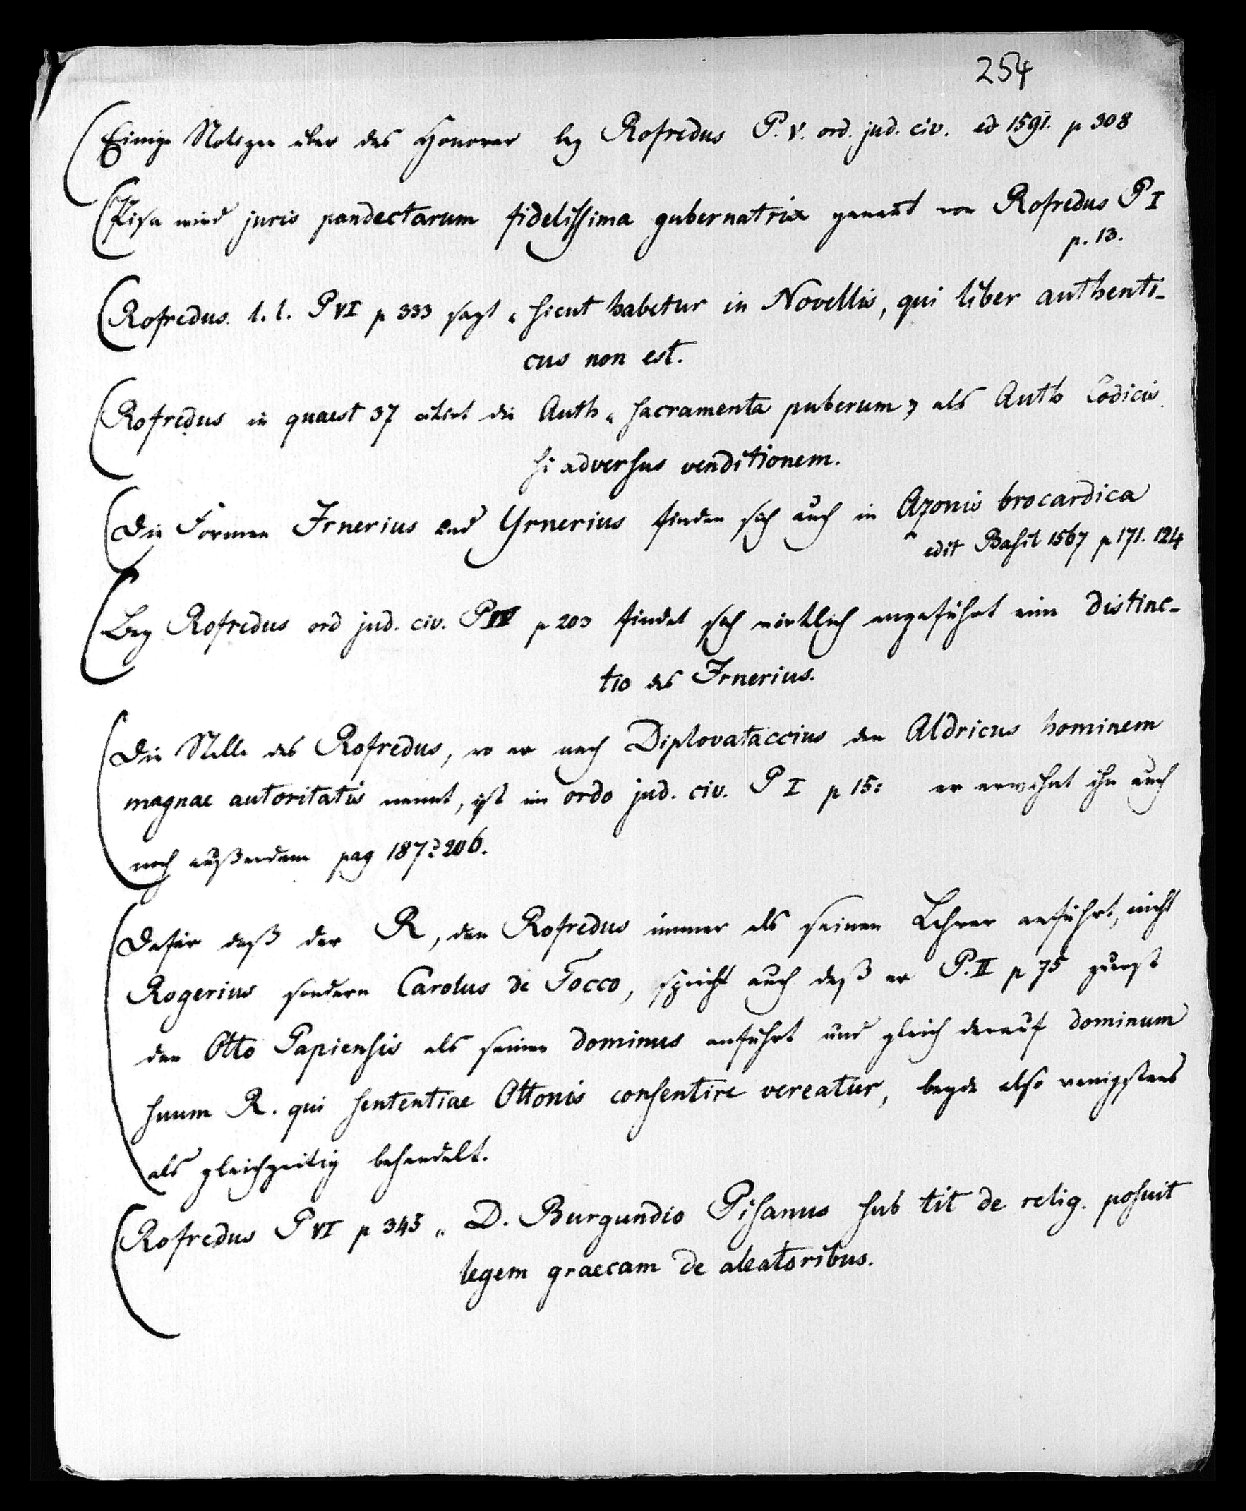 254
Einige Notizen über das Honorar bey Rofredus P. V. ord. jud. civ. ed 1591. p 308
Pisa wird juris pandectarum fidelissima gubernatrix genannt von Rofredus P I
p. 13.
Rofredus l. l. P VI p 333 sagt „ sicut habetur in Novellis, qui liber authenti-
cus non est.
Rofredus in quaest 37 citirt die Auth „ sacramenta puberum " als Auth Codicis
si adversus venditionem.
Die Formen Irnerius und Yrnerius finden sich auch in Azonis brocardica
edit Basil 1567 p 171. 124
Bey Rofredus ord jud. civ. P IV p 203 findet sich wirklich angeführt eine distinc-
tio des Irnerius.
Die Stelle des Rofredus, wo er nach Diplovataccius den Aldricus hominem
magnae autoritatis nennt, ist im ordo jud. civ. P I p 15: er erwähnt ihn auch
noch außerdem pag 187? 206.
Dafür daß der R, den Rofredus immer als seinen Lehrer anführt, nicht
Rogerius sondern Carolus de Tocco, spricht auch daß er P. II p 75 zuerst
den Otto Papiensis als seinen dominus anführt und gleich darauf dominum
suum R. qui sententiae Ottonis consentire vereatur, beyde also wenigstens
als gleichzeitig behandelt.
Rofredus P VI p 345 „ D. Burgundio Pisanus sub tit de relig. posuit
legem graecam de aleatoribus.